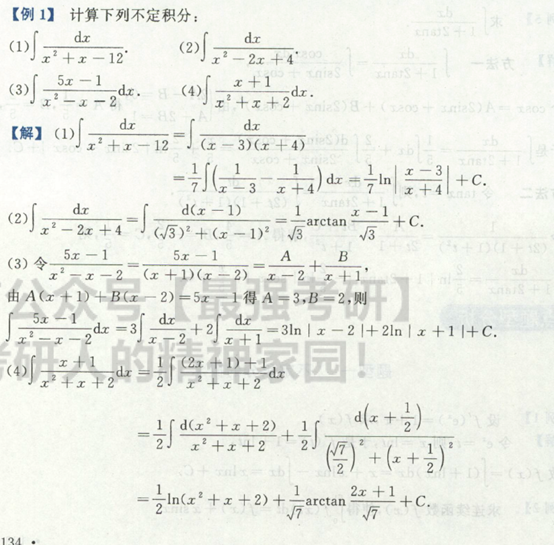 【例 1】 计算下列不定积分:
(1)∫ dx/(x² + x − 12). (2)∫ dx/(x² − 2x + 4).
(3)∫ (5x − 1)/(x² − x − 2) dx. (4)∫ (x + 1)/(x² + x + 2) dx.
【解】 (1)∫ dx/(x² + x − 12) = ∫ dx/((x − 3)(x + 4))
= 1/7 ∫(1/(x − 3) − 1/(x + 4)) dx = 1/7 ln|(x − 3)/(x + 4)| + C.
(2)∫ dx/(x² − 2x + 4) = ∫ d(x − 1)/((√3)² + (x − 1)²) = 1/√3 arctan (x − 1)/√3 + C.
(3) 令 (5x − 1)/(x² − x − 2) = (5x − 1)/((x + 1)(x − 2)) = A/(x − 2) + B/(x + 1),
由 A(x + 1) + B(x − 2) = 5x − 1 得 A = 3, B = 2, 则
∫ (5x − 1)/(x² − x − 2) dx = 3∫ dx/(x − 2) + 2∫ dx/(x + 1) = 3ln | x − 2 | + 2ln | x + 1 | + C.
(4)∫ (x + 1)/(x² + x + 2) dx = 1/2 ∫ ((2x + 1) + 1)/(x² + x + 2) dx
= 1/2 ∫ d(x² + x + 2)/(x² + x + 2) + 1/2 ∫ d(x + 1/2)/((√7/2)² + (x + 1/2)²)
= 1/2 ln(x² + x + 2) + 1/√7 arctan (2x + 1)/√7 + C.
公众号【最强考研】
考研人的精神家园！
134 ·